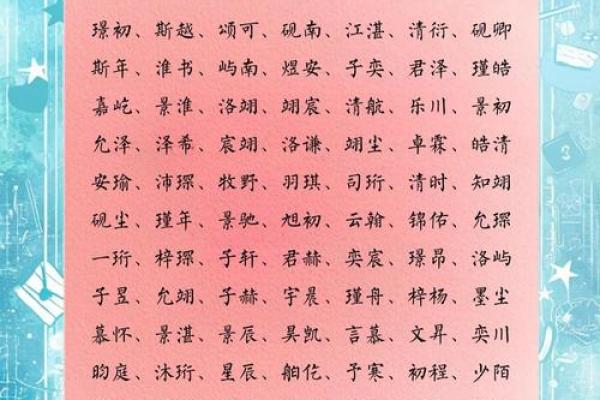 璟初、斯越、颂可、砚南、江湛、清衍、砚卿
斯年、淮书、屿南、煜安、子奕、君泽、瑾皓
嘉屹、景淮、洛翊、翊宸、清航、乐川、景初
允泽、泽希、宸翊、洛谦、翊尘、卓霖、皓清
安瑜、沛琛、牧野、羽琪、司珩、清时、知翊
砚尘、瑾年、景驰、旭初、云翰、锦佑、允琛
一珩、梓琛、子轩、君赫、奕宸、璟昂、洛屿
子昱、允翊、子赫、宇晨、瑾舟、梓杨、墨尘
慕怀、景湛、景辰、昊凯、言慕、文昇、奕川
昀庭、沐珩、星辰、舶仡、予寒、初程、少陌